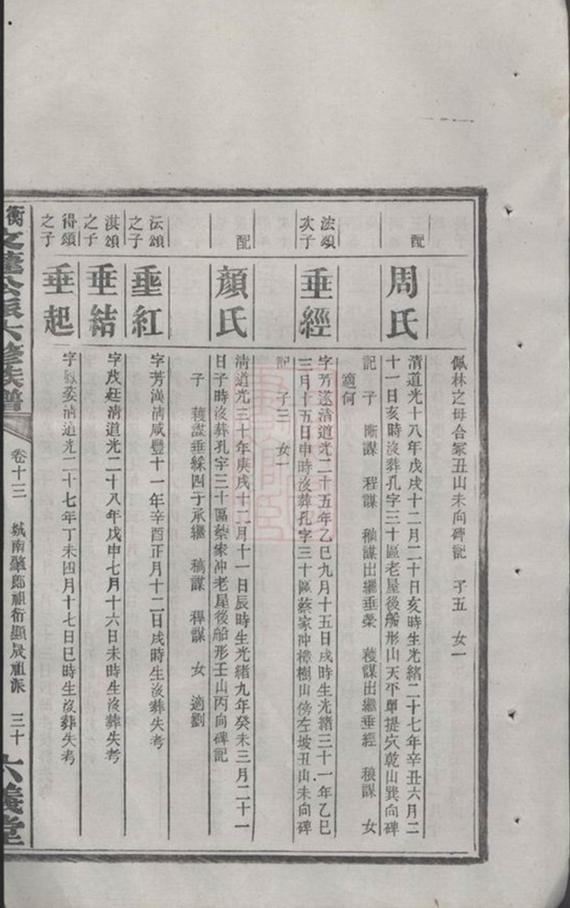 佩林之母合冢丑山未向碑記　子五　女一
配
周氏
清道光十八年戊戌十二月二十日亥時生光緒二十七年辛丑六月二
十一日亥時沒葬孔字三十區老屋後船形山天平單提穴乾山巽向碑
記　子　謀　程謀　謀出繼垂榮　穫謀出繼垂經　稂謀　女
適何
法頌
次子
垂經
字芳遂清道光二十五年乙巳九月十五日戌時生光緒三十一年乙巳
三月十五日申時沒葬孔字三十區蔡家冲樟樹山傍左坡丑山未向碑
記　子三　女一
配
顏氏
清道光三十年庚戌十二月十一日辰時生光緒九年癸未三月二十一
日子時沒葬孔字三十區蔡家冲老屋後船形壬山丙向碑記
子　穫謀垂經四子承繼　稿謀　稈謀　女　適劉
沄頌
之子
垂紅
字芳漢清咸豐十一年辛酉正月十二日戌時生沒葬失考
淇頌
之子
垂結
字茂廷清道光二十八年戊申七月十六日未時生沒葬失考
得頌
之子
垂起
字清道光二十七年丁未四月十七日巳時生沒葬失考
衡文達公派六修族譜
卷十三
城南肇郎祖衍顯晟祖派
三十
六義堂